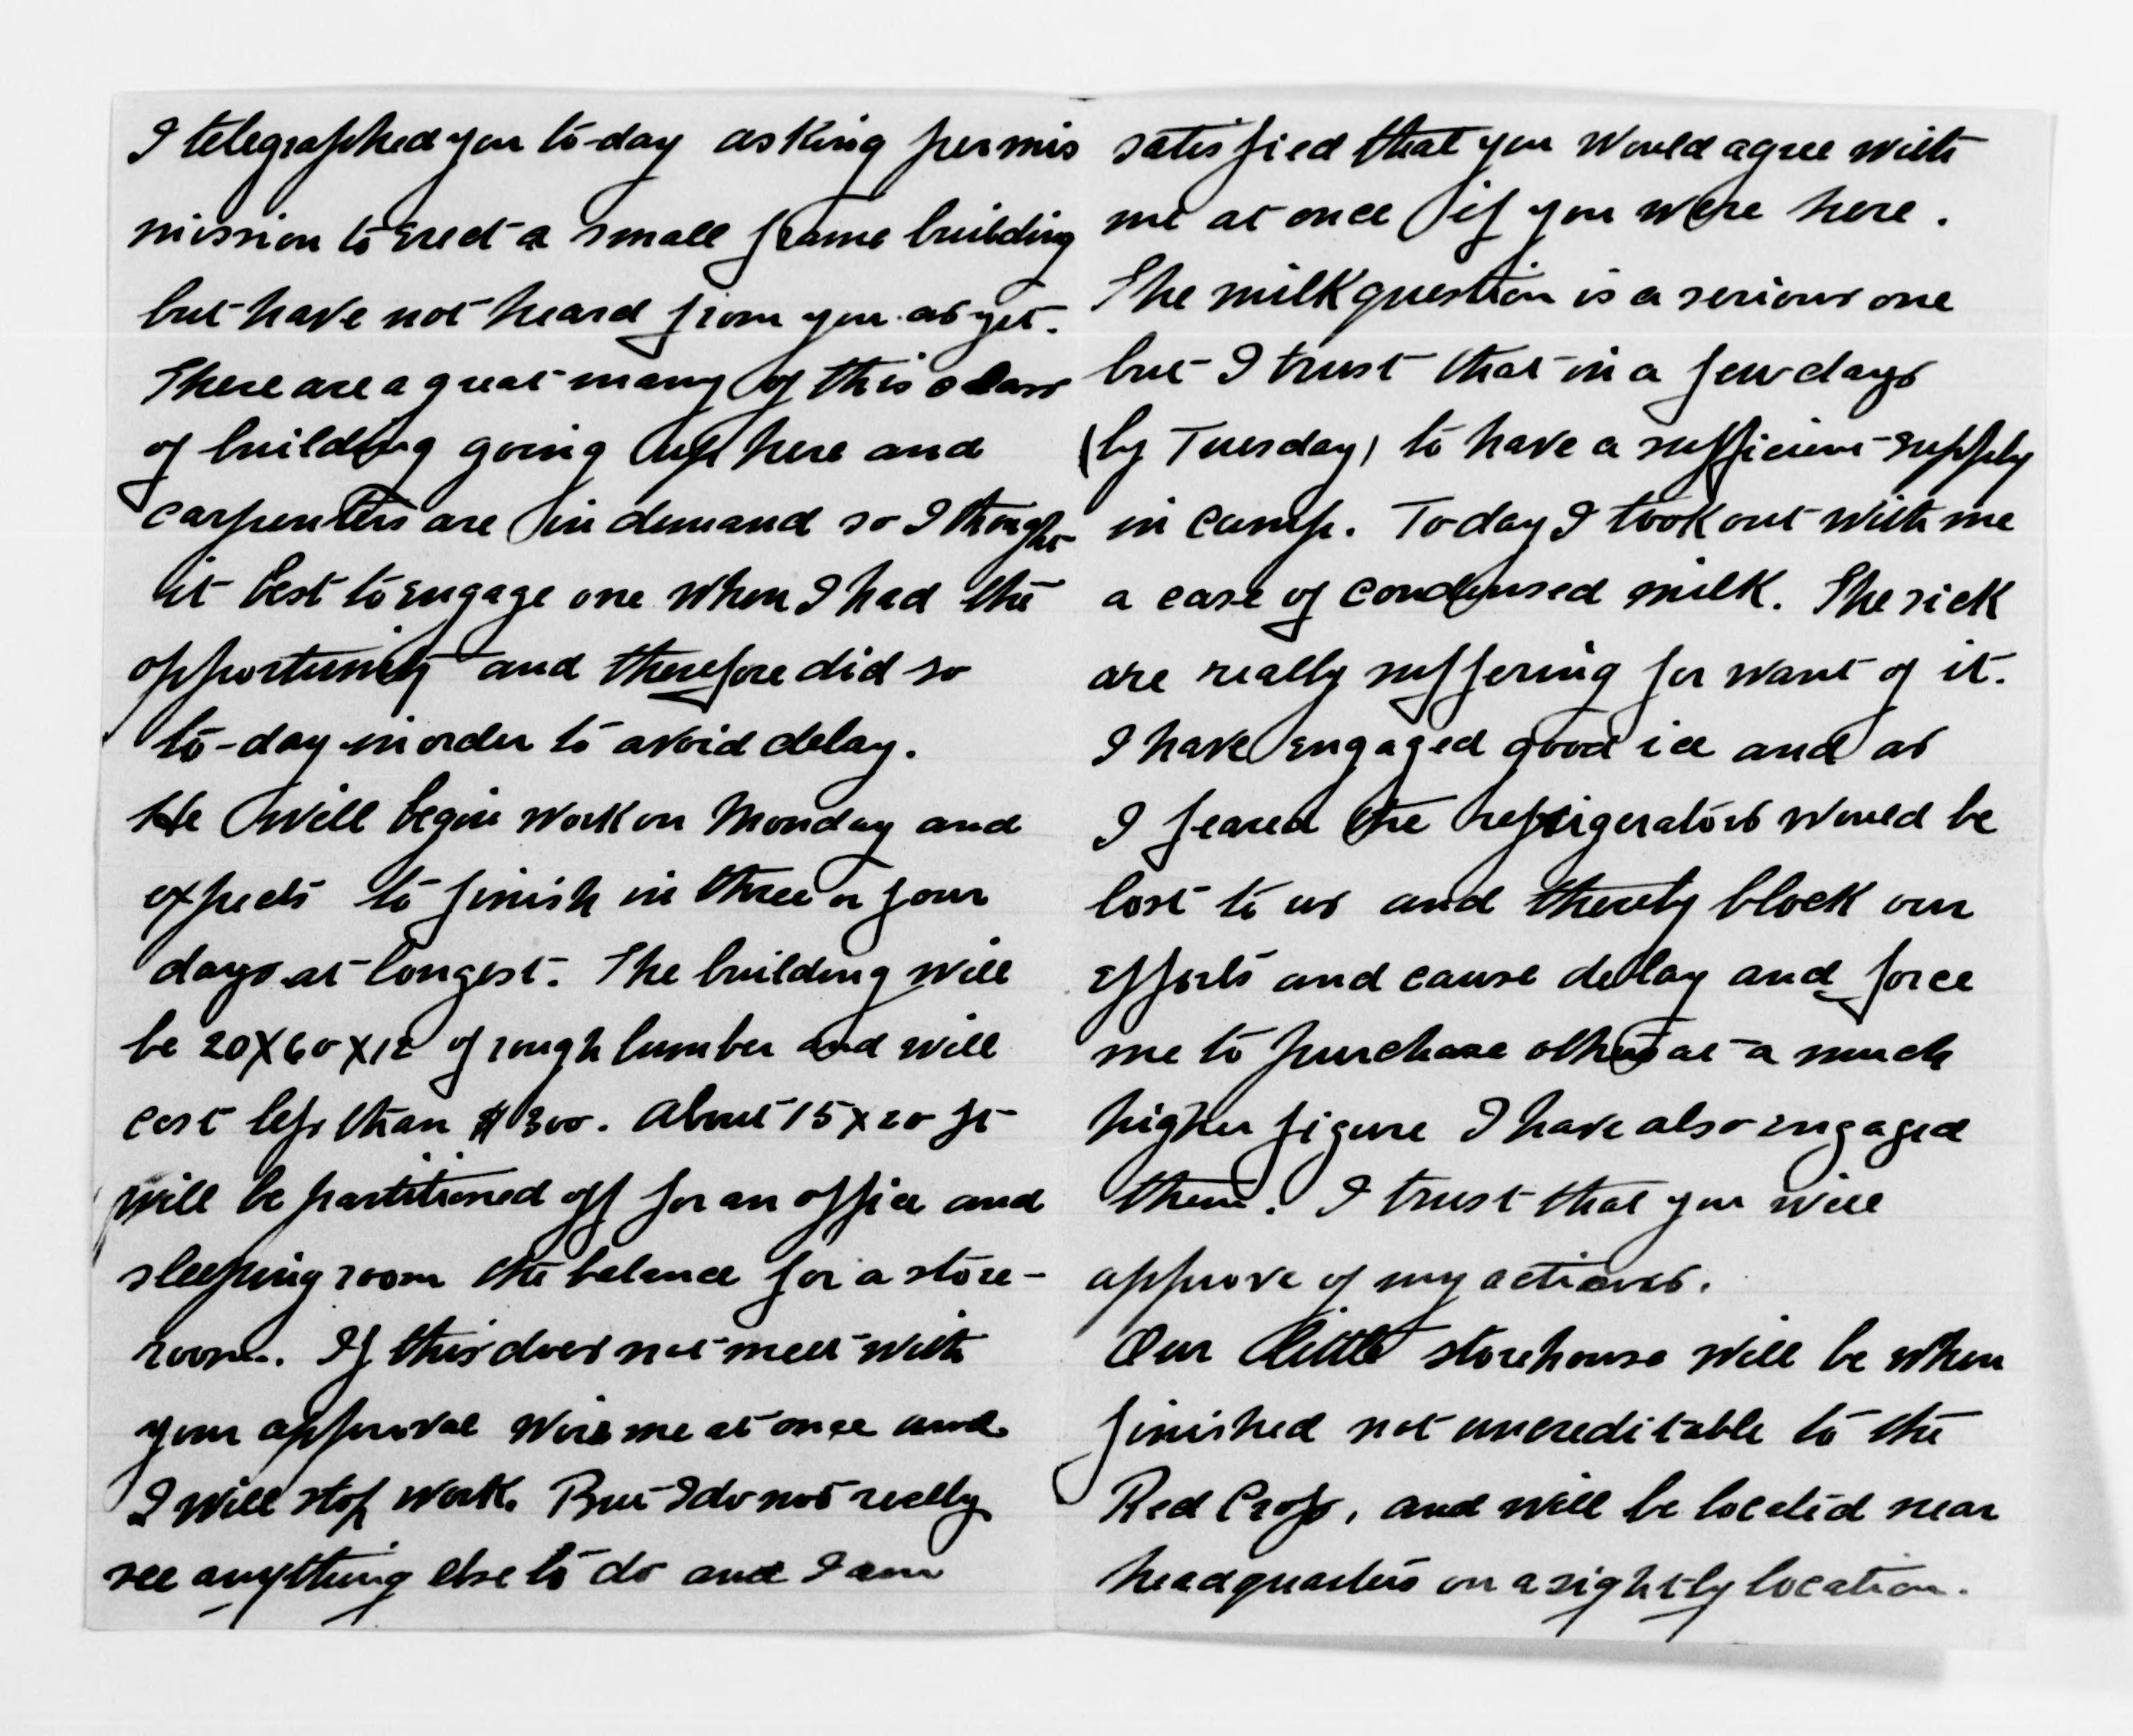 I telegraphed you to-day asking permis
mission to erect a small frame building
but have not heard from you as yet.
There are a great many of this class
of building going up here and
carpenters are in demand so I thought
it best to engage one when I had the
opportunity and therefore did so
to-day in order to avoid delay.
He will begin work on Monday and
expects to finish in three or four
days at longest. The building will
be 20X60X12 of rough lumber and will
cost less than $300. About 15x20 ft
will be partitioned off for an office and
sleeping room the balance for a store-
room. If this does not meet with
your approval wire me at once and
I will stop work. But I do not really
see anything else to do and I am
satisfied that you would agree with
me at once if you were here.
The milk question is a serious one
but I trust that in a few days
(by Tuesday) to have a sufficient supply
in camp. Today I took out with me
a case of condensed milk. The sick
are really suffering for want of it.
I have engaged good ice and as
I feared the refrigerators would be
lost to us and thereby block our
efforts and cause delay and force
me to purchase others at a much
higher figure I have also engaged
them. I trust that you will
approve of my actions.
Our little storehouse will be when
finished not uncreditable to the
Red Cross, and will be located near
headquarters on a sightly location.